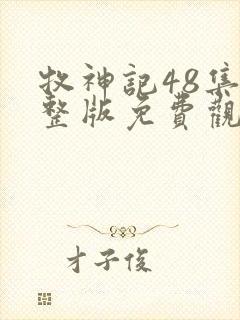 牧神記48集
整版免費觀
才子俊